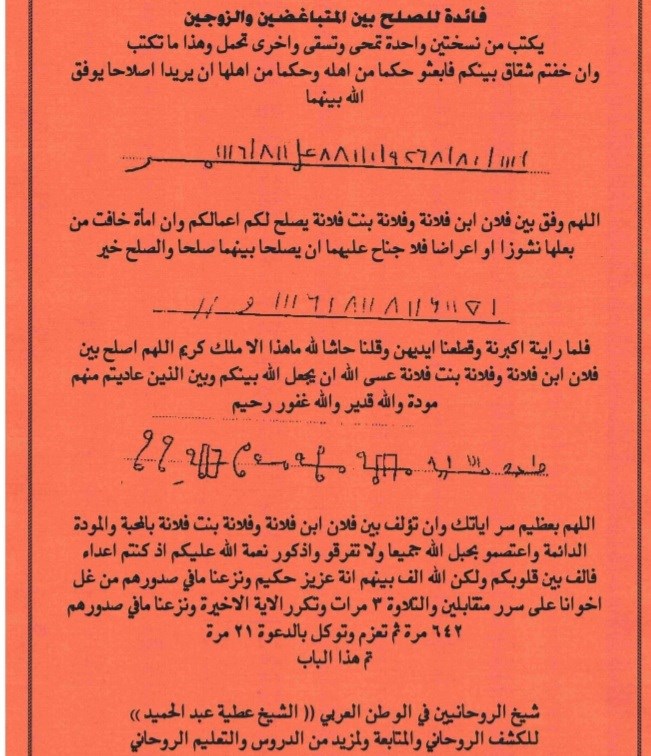 فائدة للصلح بين المتباغضين والزوجين
يكتب من نسختين واحدة تمحى وتسقى واخرى تحمل وهذا ما تكتب
وان خفتم شقاق بينكم فابعثو حكما من اهله وحكما من اهلها ان يريدا اصلاحا يوفق
الله بينهما
اللهم وفق بين فلان ابن فلانة وفلانة بنت فلانة يصلح لكم اعمالكم وان امأة خافت من
بعلها نشوزا او اعراضا فلا جناح عليهما ان يصلحا بينهما صلحا والصلح خير
فلما راينة اكبرنة وقطعنا ايديهن وقلنا حاشا لله ماهذا الا ملك كريم اللهم اصلح بين
فلان ابن فلانة وفلانة بنت فلانة عسى الله ان يجعل الله بينكم وبين الذين عاديتم منهم
مودة والله قدير والله غفور رحيم
اللهم بعظيم سر اياتك وان تؤلف بين فلان ابن فلانة وفلانة بنت فلانة بالمحبة والمودة
الدائمة واعتصمو بحبل الله جميعا ولا تفرقو واذكور نعمة الله عليكم اذ كنتم اعداء
فالف بين قلوبكم ولكن الله الف بينهم انة عزيز حكيم ونزعنا مافي صدورهم من غل
اخوانا على سرر متقابلين والتلاوة ٣ مرات وتكرر الاية الاخيرة ونزعنا مافي صدورهم
٦٤٢ مرة ثم تعزم وتوكل بالدعوة ٢١ مرة
تم هذا الباب
شيخ الروحانيين في الوطن العربي (( الشيخ عطية عبد الحميد ))
للكشف الروحاني والمتابعة ولمزيد من الدروس والتعليم الروحاني